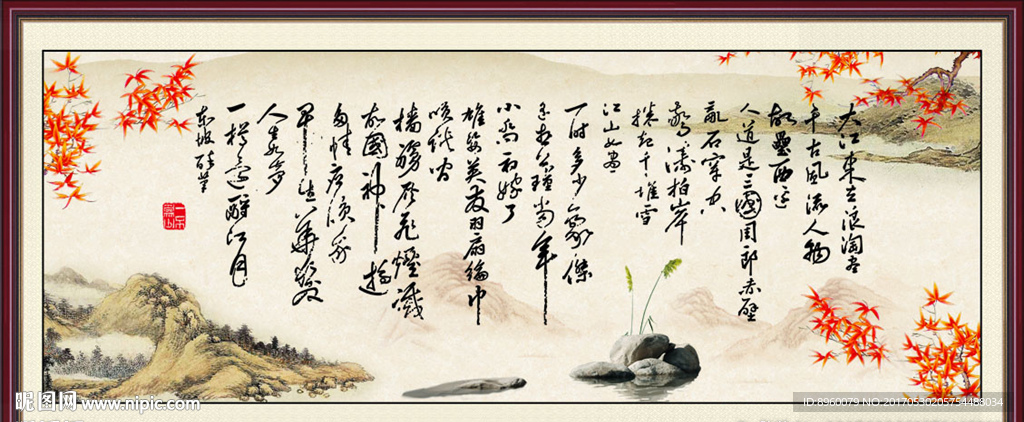 大江東去浪淘盡
千古風流人物
故壘西邊
人道是三國周郎赤壁
亂石穿空
驚濤拍岸
捲起千堆雪
江山如畫
一時多少豪傑
遙想公瑾當年
小喬初嫁了
雄姿英发羽扇綸巾
談笑間
檣艣灰飛煙滅
故國神遊
多情應笑我
早生華髮
人生如夢
一樽還酹江月
东坡醉筆
昵图网 www.nipic.com
ID:8960079 NO:20170530205754488034